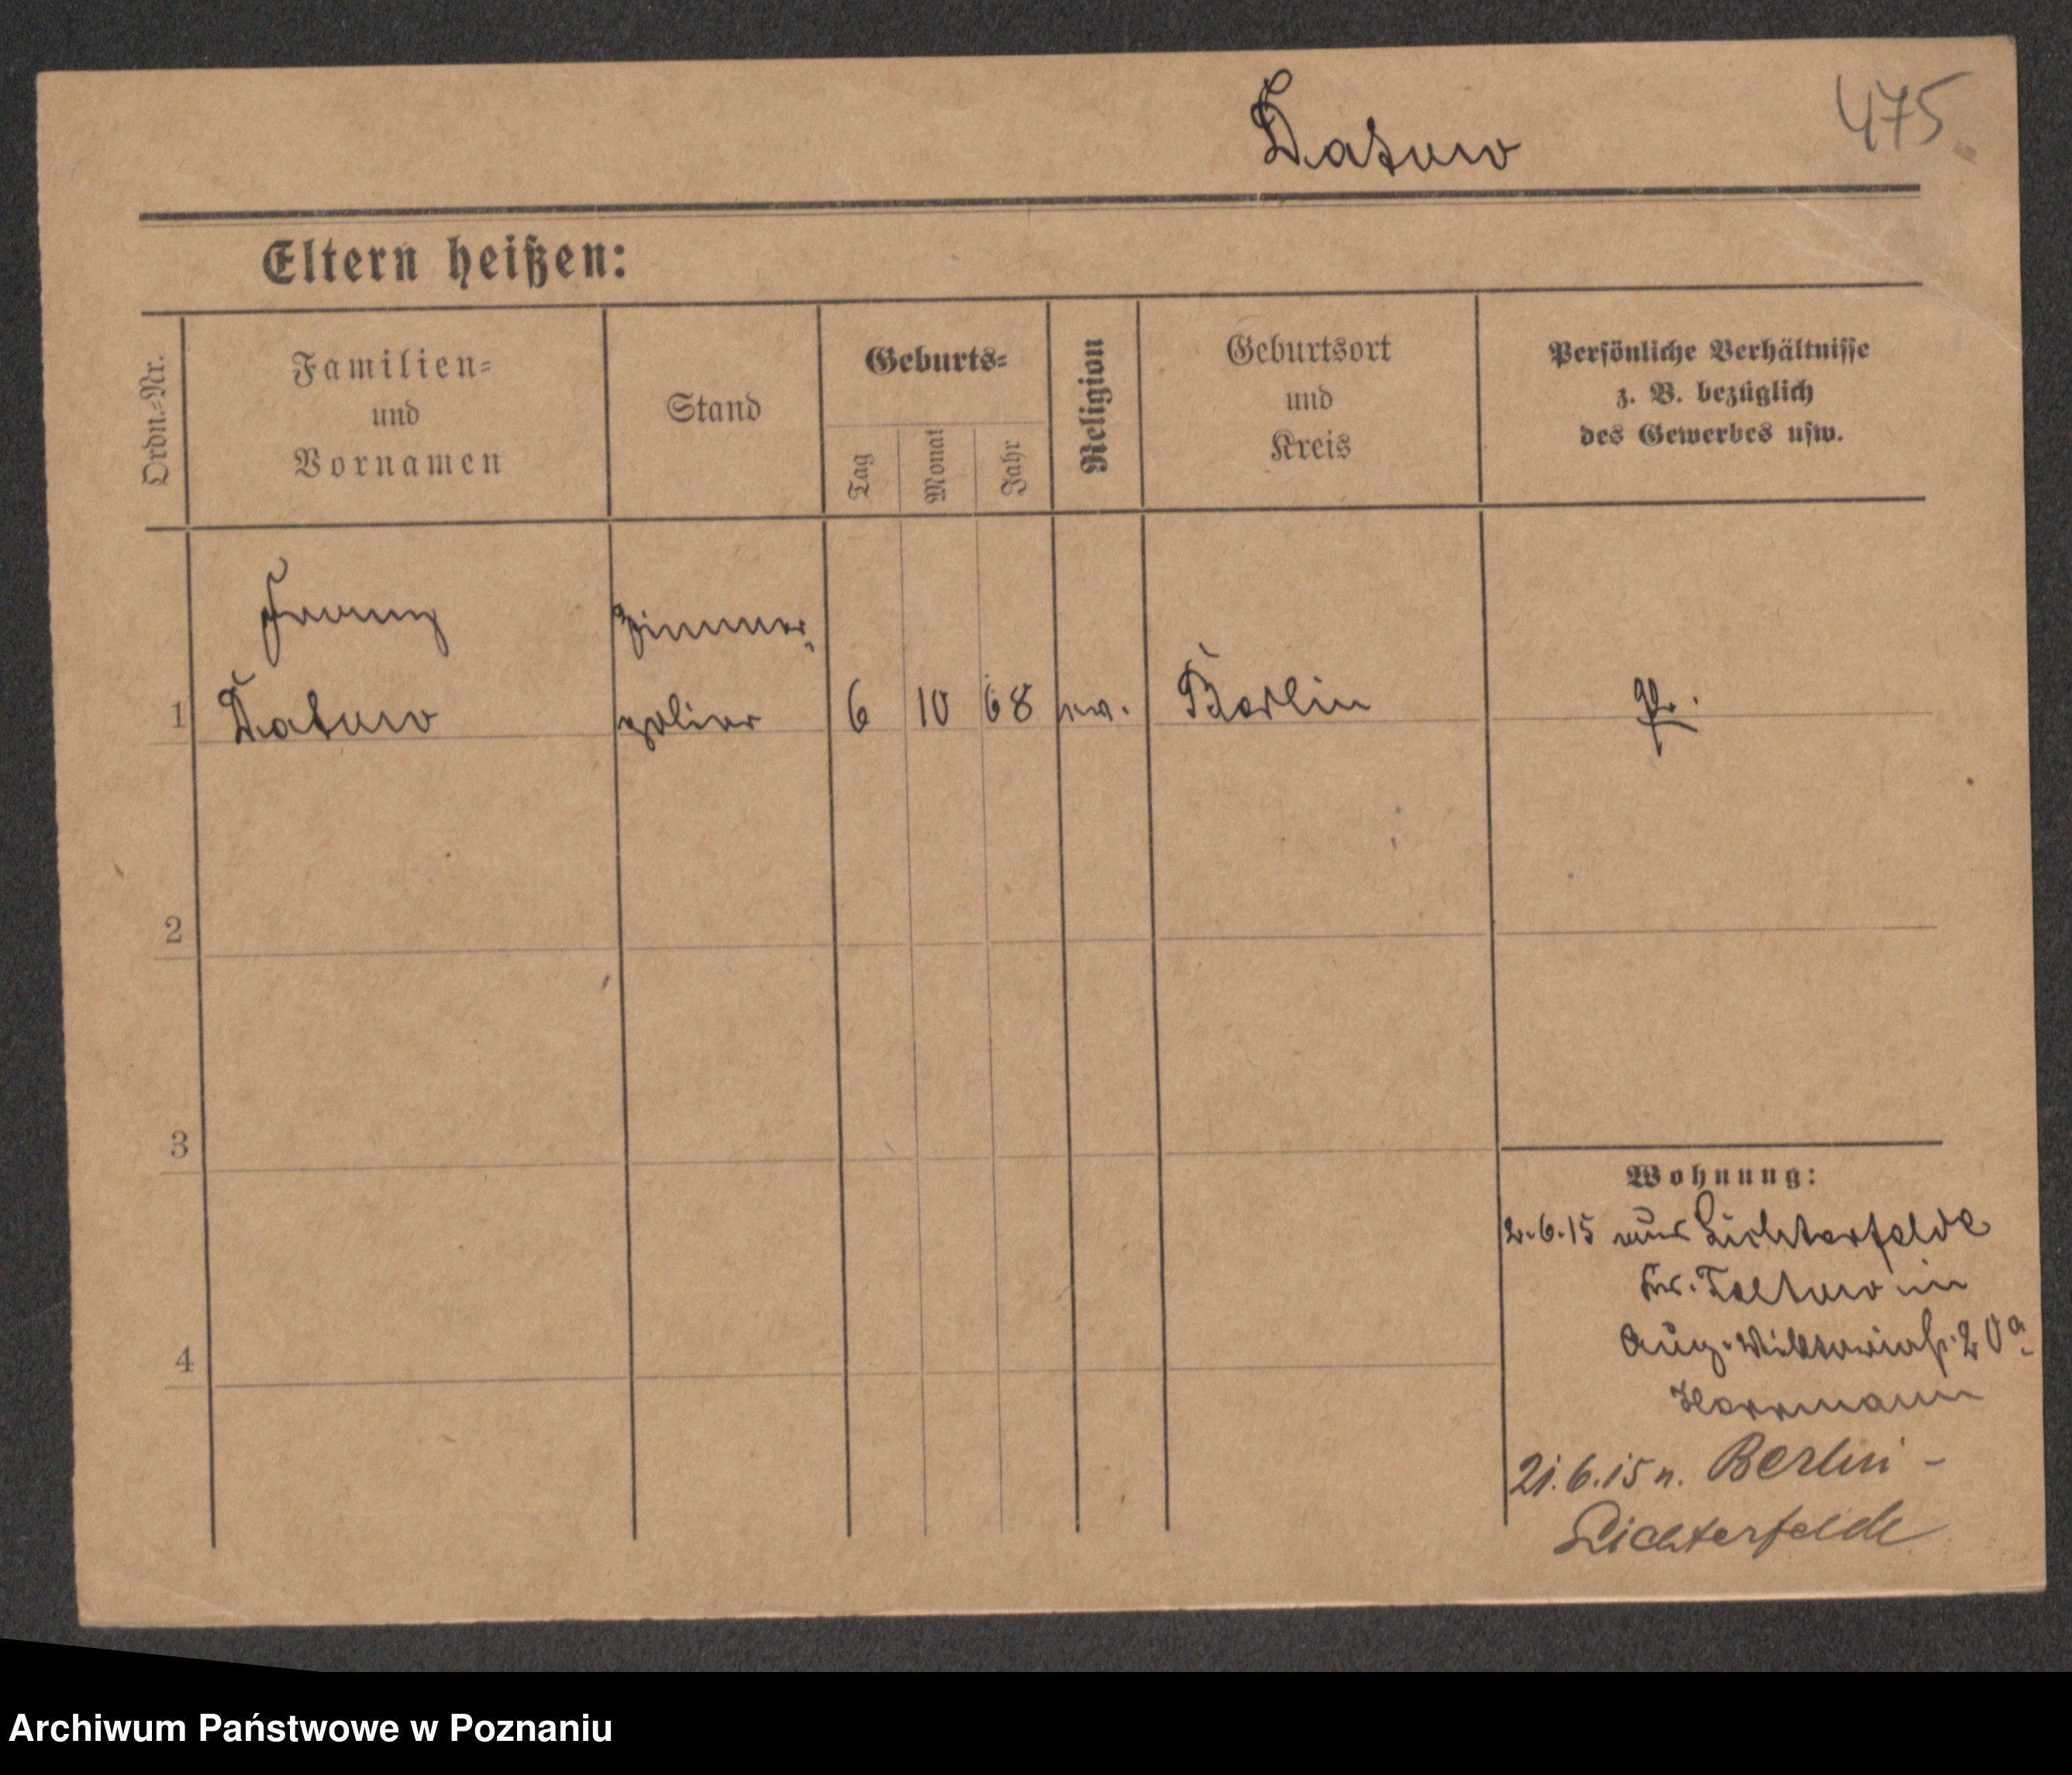 Datow
475
Eltern heißen:
Ordn.-Nr.
Familien-
und
Vornamen
Stand
Geburts-
Tag
Monat
Jahr
Religion
Geburtsort
und
Kreis
Persönliche Verhältnisse
z. B. bezüglich
des Gewerbes usw.
Franz
Zimmer-
1 Datow polier 6 10 68 ev. Berlin Pr.
2
3
4
Wohnung:
2.6.15 aus Lichterfelde
Kr. Teltow in
Aug. Viktoriastr. 20a
Herrmann
21.6.15 n. Berlin-
Lichterfelde
Archiwum Państwowe w Poznaniu